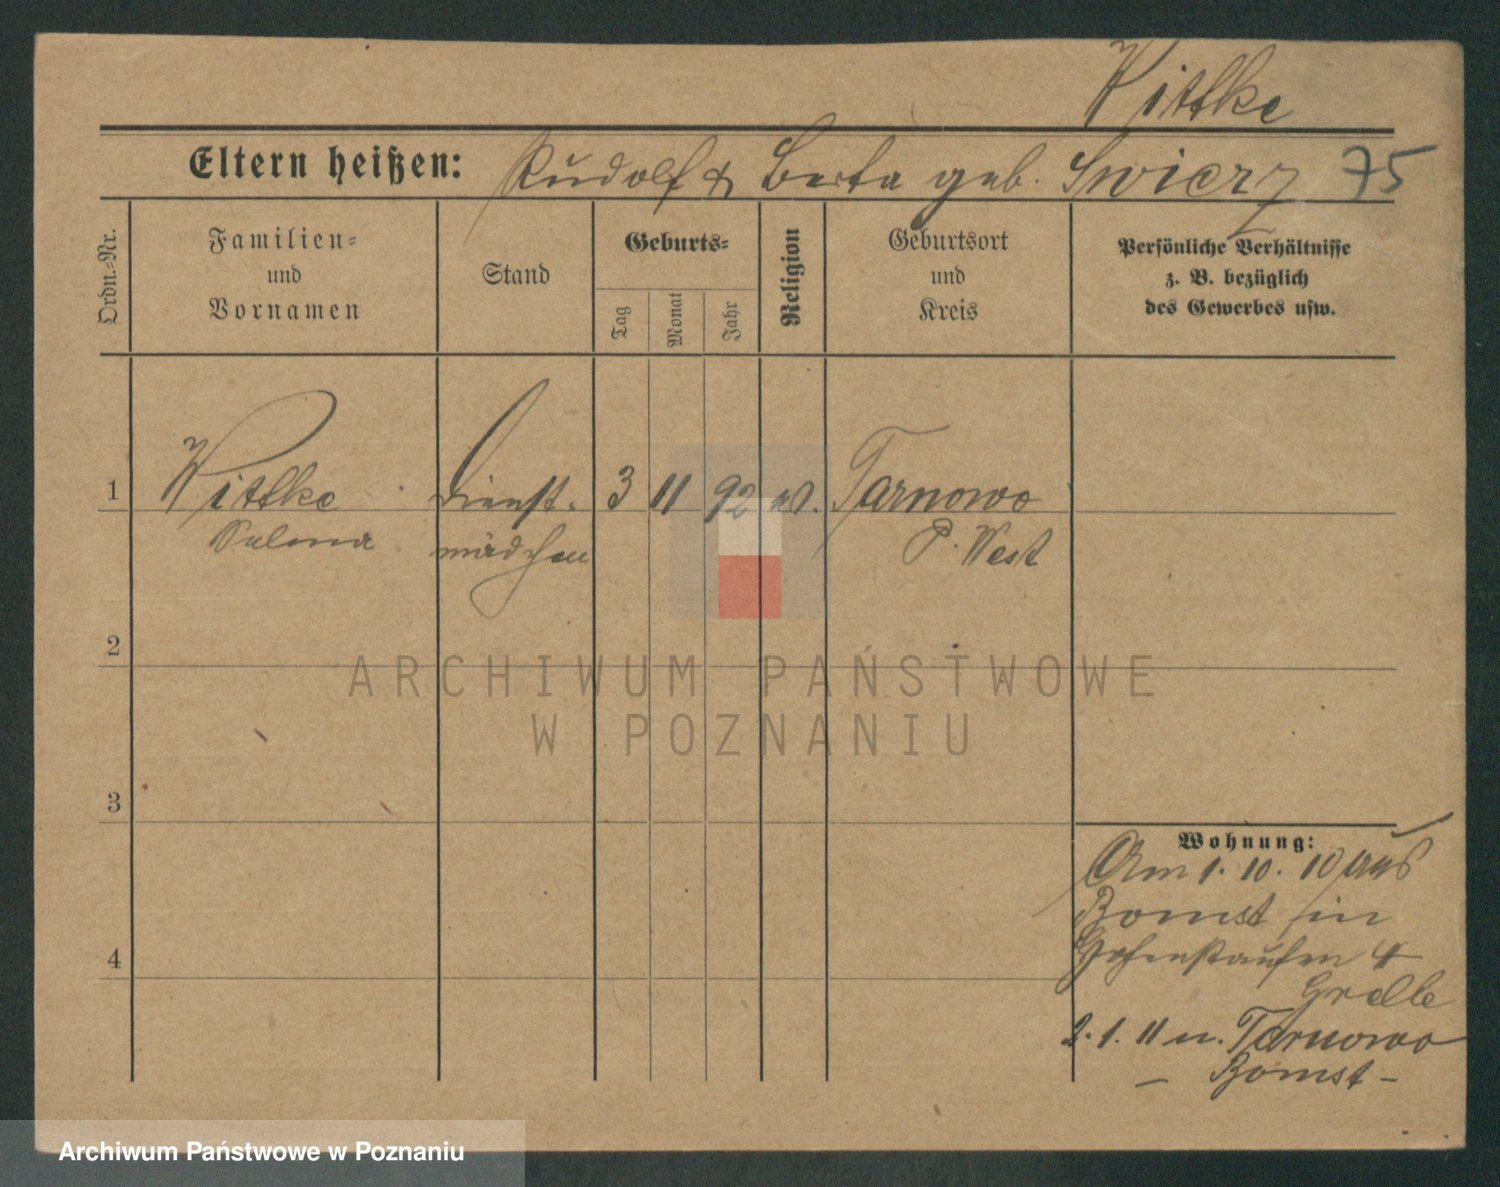 Wittke
Eltern heißen: Rudolf & Berta geb. Swierz 75
Ordn.-Nr.
Familien-
und
Vornamen
Stand
Geburts-
Tag
Monat
Jahr
Religion
Geburtsort
und
Kreis
Persönliche Verhältnisse
z. B. bezüglich
des Gewerbes usw.
1 Wittke Dienst- 3 11 92 ev. Tarnowo
mädchen P. West
2
ARCHIWUM PAŃSTWOWE
W POZNANIU
3
Wohnung:
Am 1. 10. 10 aus
Bomst in
Hohenstaufen 4
4
2. 1. 11 n. Tarnowo
– Bomst –
Archiwum Państwowe w Poznaniu